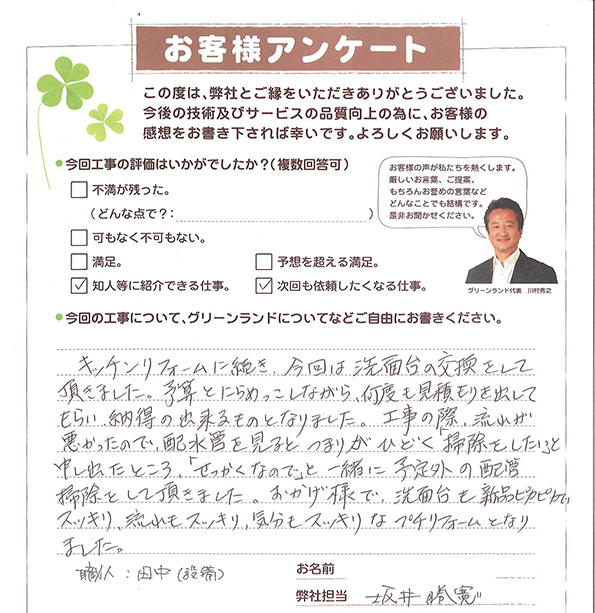 お客様アンケート
この度は、弊社とご縁をいただきありがとうございました。
今後の技術及びサービスの品質向上の為に、お客様の
感想をお書き下されば幸いです。よろしくお願いします。
●今回工事の評価はいかがでしたか？(複数回答可)
不満が残った。
(どんな点で？: )
可もなく不可もない。
満足。 予想を超える満足。
知人等に紹介できる仕事。 次回も依頼したくなる仕事。
お客様の声が私たちを熱くします。
厳しいお言葉、ご提案、
もちろんお誉めの言葉など
どんなことでも結構です。
是非お聞かせください。
グリーンランド代表 川村秀之
●今回の工事について、グリーンランドについてなどご自由にお書きください。
キッチンリフォームに続き、今回は洗面台の交換をして
頂きました。予算とにらめっこしながら、何度も見積もりを出して
もらい、納得の出来るものとなりました。工事の際、流れが
悪かったので、配水管を見ると つまりが ひどく「掃除をしたい」と
申し出たところ、「せっかくなので」と一緒に予定外の配管
掃除をして頂きました。おかげ様で、洗面台も新品ピカピカで
スッキリ、流れもスッキリ、気分もスッキリな プチリフォームとなり
ました。
職人：田中(設備)
お名前
弊社担当 坂井